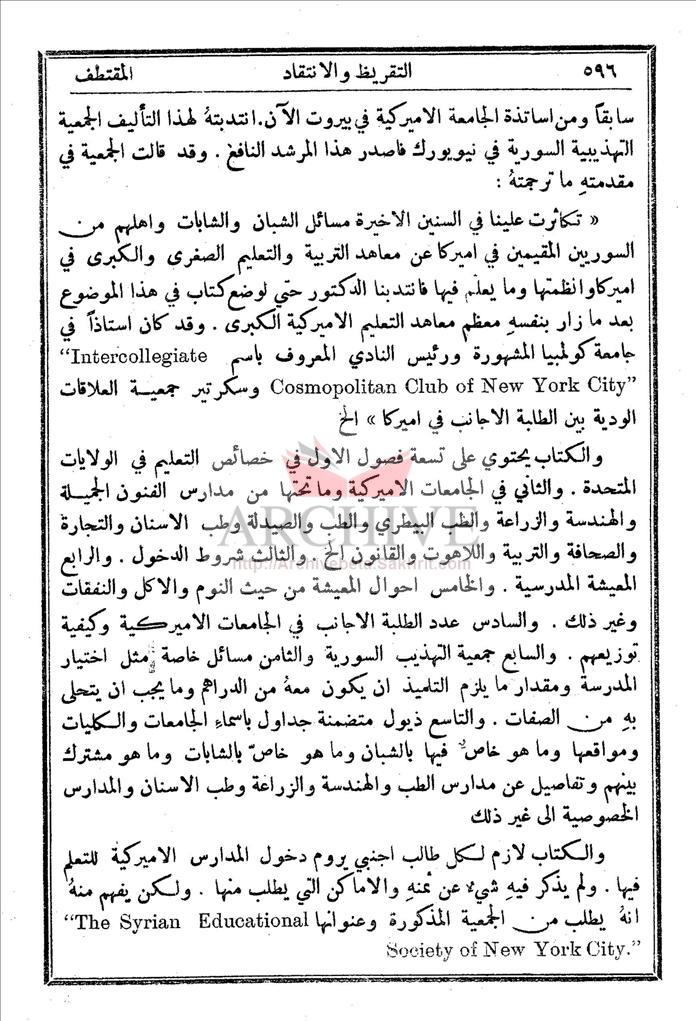 ٥٩٦ التقريظ والانتقاد المقتطف
سابقاً ومن اساتذة الجامعة الاميركية في بيروت الآن. انتدبتهُ لهذا التأليف الجمعية
التهذيبية السورية في نيويورك فاصدر هذا المرشد النافع . وقد قالت الجمعية في
مقدمتهِ ما ترجمتهُ :
« تكاثرت علينا في السنين الاخيرة مسائل الشبان والشابات واهلهم من
السوريين المقيمين في اميركا عن معاهد التربية والتعليم الصغرى والكبرى في
اميركا وانظمتها وما يعلَّم فيها فانتدبنا الدكتور حتي لوضع كتاب في هذا الموضوع
بعد ما زار بنفسهِ معظم معاهد التعليم الاميركية الكبرى . وقد كان استاذاً في
جامعة كولمبيا المشهورة ورئيس النادي المعروف باسم "Intercollegiate
Cosmopolitan Club of New York City" وسكرتير جمعية العلاقات
الودية بين الطلبة الاجانب في اميركا » الخ
والكتاب يحتوي على تسعة فصول الاول في خصائص التعليم في الولايات
المتحدة . والثاني في الجامعات الاميركية وما تحتها من مدارس الفنون الجميلة
والهندسة والزراعة والطب البيطري والطب والصيدلة وطب الاسنان والتجارة
ARCHIVE
والصحافة والتربية واللاهوت والقانون الخ . والثالث شروط الدخول . والرابع
http://Archivebeta.Sakhrit.com
المعيشة المدرسية . والخامس احوال المعيشة من حيث النوم والاكل والنفقات
وغير ذلك . والسادس عدد الطلبة الاجانب في الجامعات الاميركية وكيفية
توزيعهم . والسابع جمعية التهذيب السورية والثامن مسائل خاصة مثل اختيار
المدرسة ومقدار ما يلزم التلميذ ان يكون معهُ من الدراهم وما يجب ان يتحلى
بهِ من الصفات . والتاسع ذيول متضمنة جداول باسماء الجامعات والكليات
ومواقعها وما هو خاصٌّ فيها بالشبان وما هو خاصّ بالشابات وما هو مشترك
بينهم وتفاصيل عن مدارس الطب والهندسة والزراعة وطب الاسنان والمدارس
الخصوصية الى غير ذلك
والكتاب لازم لكل طالب اجنبي يروم دخول المدارس الاميركية للتعلم
فيها . ولم يذكر فيهِ شيءٌ عن ثمنهِ والاماكن التي يطلب منها . ولكن يفهم منهُ
انهُ يطلب من الجمعية المذكورة وعنوانها "The Syrian Educational
Society of New York City."